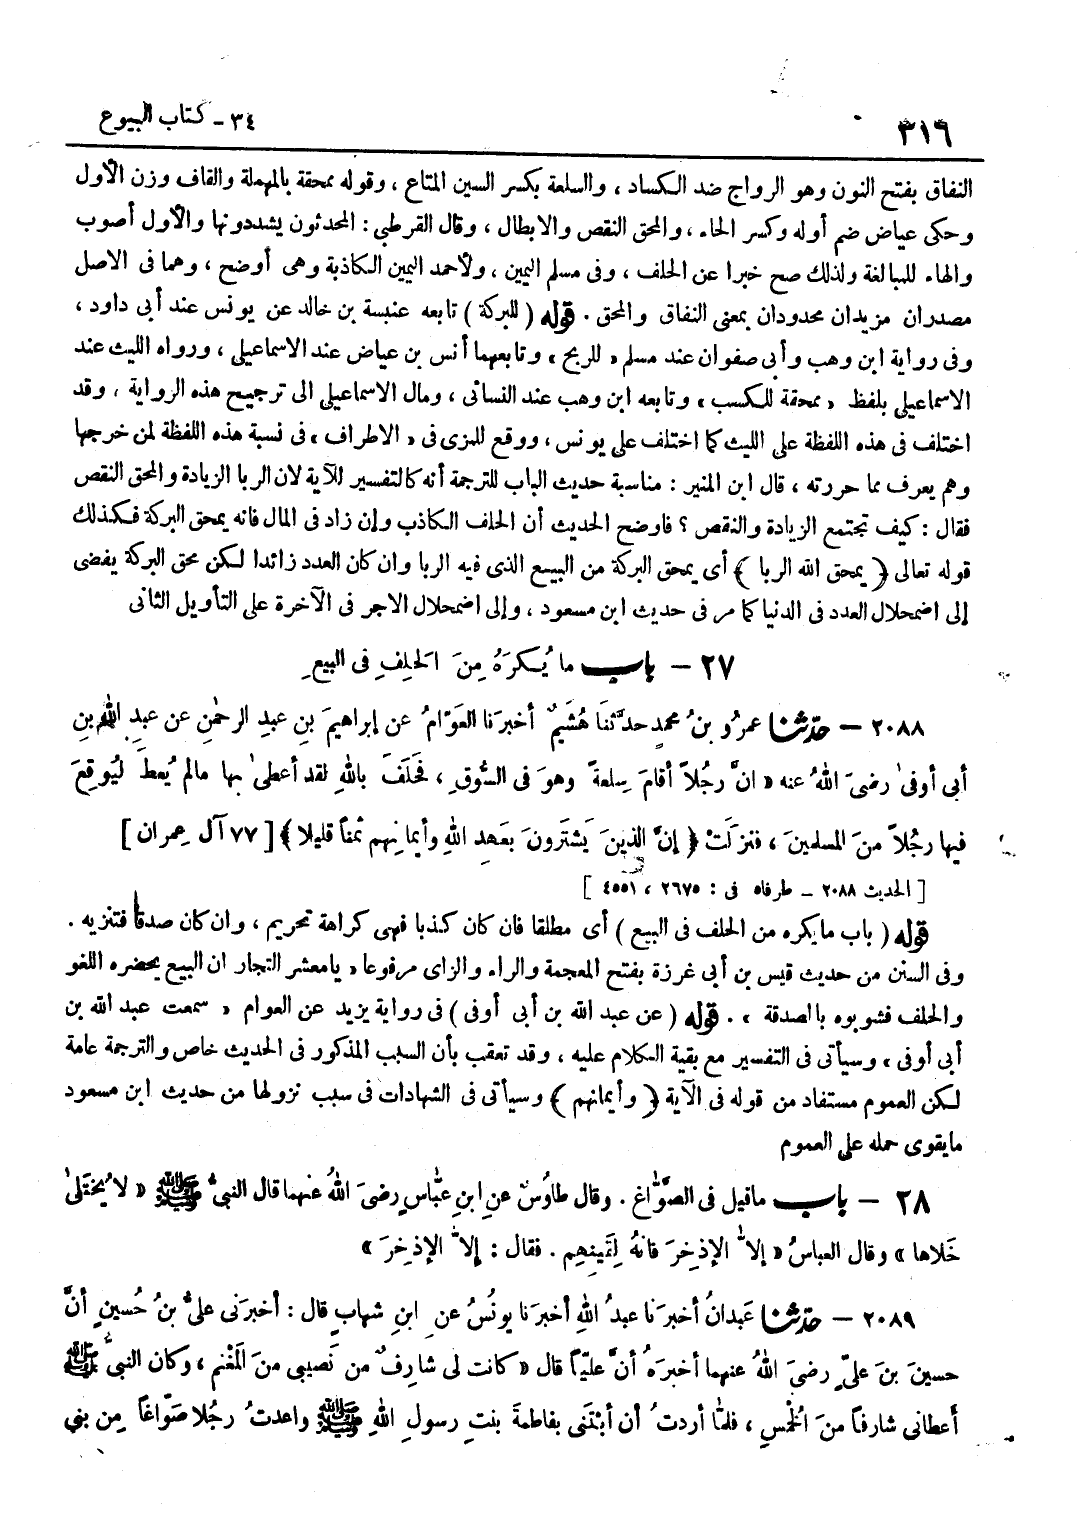 ٣١٦
٣٤ - كتاب البيوع
النفاق بفتح النون وهو الرواج ضد الكساد ، والسلعة بكسر السين المتاع ، وقوله ممحقة بالمهملة والقاف وزن الأول
وحكى عياض ضم أوله وكسر الحاء ، والمحق النقص والابطال ، وقال القرطبي : المحدثون يشددونها والأول أصوب
والهاء للمبالغة ولذلك صح خبرا عن الحلف ، وفى مسلم اليمين ، ولأحمد اليمين الكاذبة وهى أوضح ، وهما فى الاصل
مصدران مزيدان محدودان بمعنى النفاق والمحق . قوله ( للبركة ) تابعه عنبسة بن خالد عن يونس عند أبى داود ،
وفى رواية ابن وهب وأبى صفوان عند مسلم « للربح » وتابعهما أنس بن عياض عند الاسماعيلى ، ورواه الليث عند
الاسماعيلى بلفظ « ممحقة للكسب » وتابعه ابن وهب عند النسائى ، ومال الاسماعيلى الى ترجيح هذه الرواية ، وقد
اختلف فى هذه اللفظة على الليث كما اختلف على يونس ، ووقع للمزى فى « الاطراف » فى نسبة هذه اللفظة لمن خرجها
وهم يعرف مما حررته ، قال ابن المنير : مناسبة حديث الباب للترجمة أنه كالتفسير للآية لان الربا الزيادة والمحق النقص
فقال : كيف تجتمع الزيادة والنقص ؟ فاوضح الحديث أن الحلف الكاذب وإن زاد فى المال فانه يمحق البركة فكذلك
قوله تعالى ﴿ يمحق الله الربا ﴾ أى يمحق البركة من البيع الذى فيه الربا وان كان العدد زائدا لكن محق البركة يفضى
إلى اضمحلال العدد فى الدنيا كما مر فى حديث ابن مسعود ، وإلى اضمحلال الاجر فى الآخرة على التأويل الثانى
٢٧ - باب ما يُكرَهُ مِنَ الحَلِفِ فى البيعِ
٢٠٨٨ - حدّثنا عمرُو بنُ محمدٍ حدَّثَنا هُشَيمٌ أخبرَنا العَوّامُ عن إبراهيمَ بنِ عبدِ الرحمٰنِ عن عبدِ اللهِ بنِ
أبى أوفىٰ رضىَ اللهُ عنه « انَّ رجُلاً أقامَ سِلعةً وهوَ فى السُّوقِ ، فحَلَفَ باللهِ لقد أعطىٰ بها مالم يُعطَ لِيُوقِعَ
فيها رجُلاً منَ المسلمينَ ، فنزلَتْ ﴿ إنَّ الذينَ يَشترَونَ بعَهدِ اللهِ وأيمانِهم ثمناً قليلا ﴾ [ ٧٧ آل عِمران ]
[ الحديث ٢٠٨٨ - طرفاه فى : ٢٦٧٥ ، ٤٥٥١ ]
قوله ( باب مايكره من الحلف فى البيع ) أى مطلقا فان كان كذبا فهى كراهة تحريم ، وان كان صدقا فتنزيه .
وفى السنن من حديث قيس بن أبى غرزة بفتح المعجمة والراء والزاى مرفوعا « يامعشر التجار ان البيع يحضره اللغو
والحلف فشوبوه بالصدقة » . قوله ( عن عبد الله بن أبى أوفى ) فى رواية يزيد عن العوام « سمعت عبد الله بن
أبى أوفى » وسيأتى فى التفسير مع بقية الكلام عليه ، وقد تعقب بأن السبب المذكور فى الحديث خاص والترجمة عامة
لكن العموم مستفاد من قوله فى الآية ﴿ وأيمانهم ﴾ وسيأتى فى الشهادات فى سبب نزولها من حديث ابن مسعود
مايقوى حمله على العموم
٢٨ - باب ماقيل فى الصَّوّاغ . وقال طاوُسٌ عنِ ابنِ عبّاسٍ رضىَ اللهُ عنهما قال النبىُّ ﷺ « لا يُختَلىٰ
خَلاها » وقال العباسُ « إلاّ الإذخِرَ فانهُ لِقَينِهِم . فقال : إلاّ الإذخِرَ »
٢٠٨٩ - حدّثنا عَبدانُ أخبرَنا عبدُ اللهِ أخبرَنا يونُسُ عنِ ابنِ شهابٍ قال : أخبرَنى علىُّ بنُ حُسينٍ أنَّ
حسينَ بنَ علىٍّ رضىَ اللهُ عنهما أخبرَهُ أنَّ عليّاً قال « كانت لى شارِفٌ من نَصيبى منَ المَغْنمِ ، وكان النبىُّ ﷺ
أعطانى شارفاً منَ الخُمسِ ، فلمّا أردتُ أن أبْتَنى بفاطمةَ بنتِ رسولِ اللهِ ﷺ واعدتُ رجُلا صَوّاغاً مِن بنى